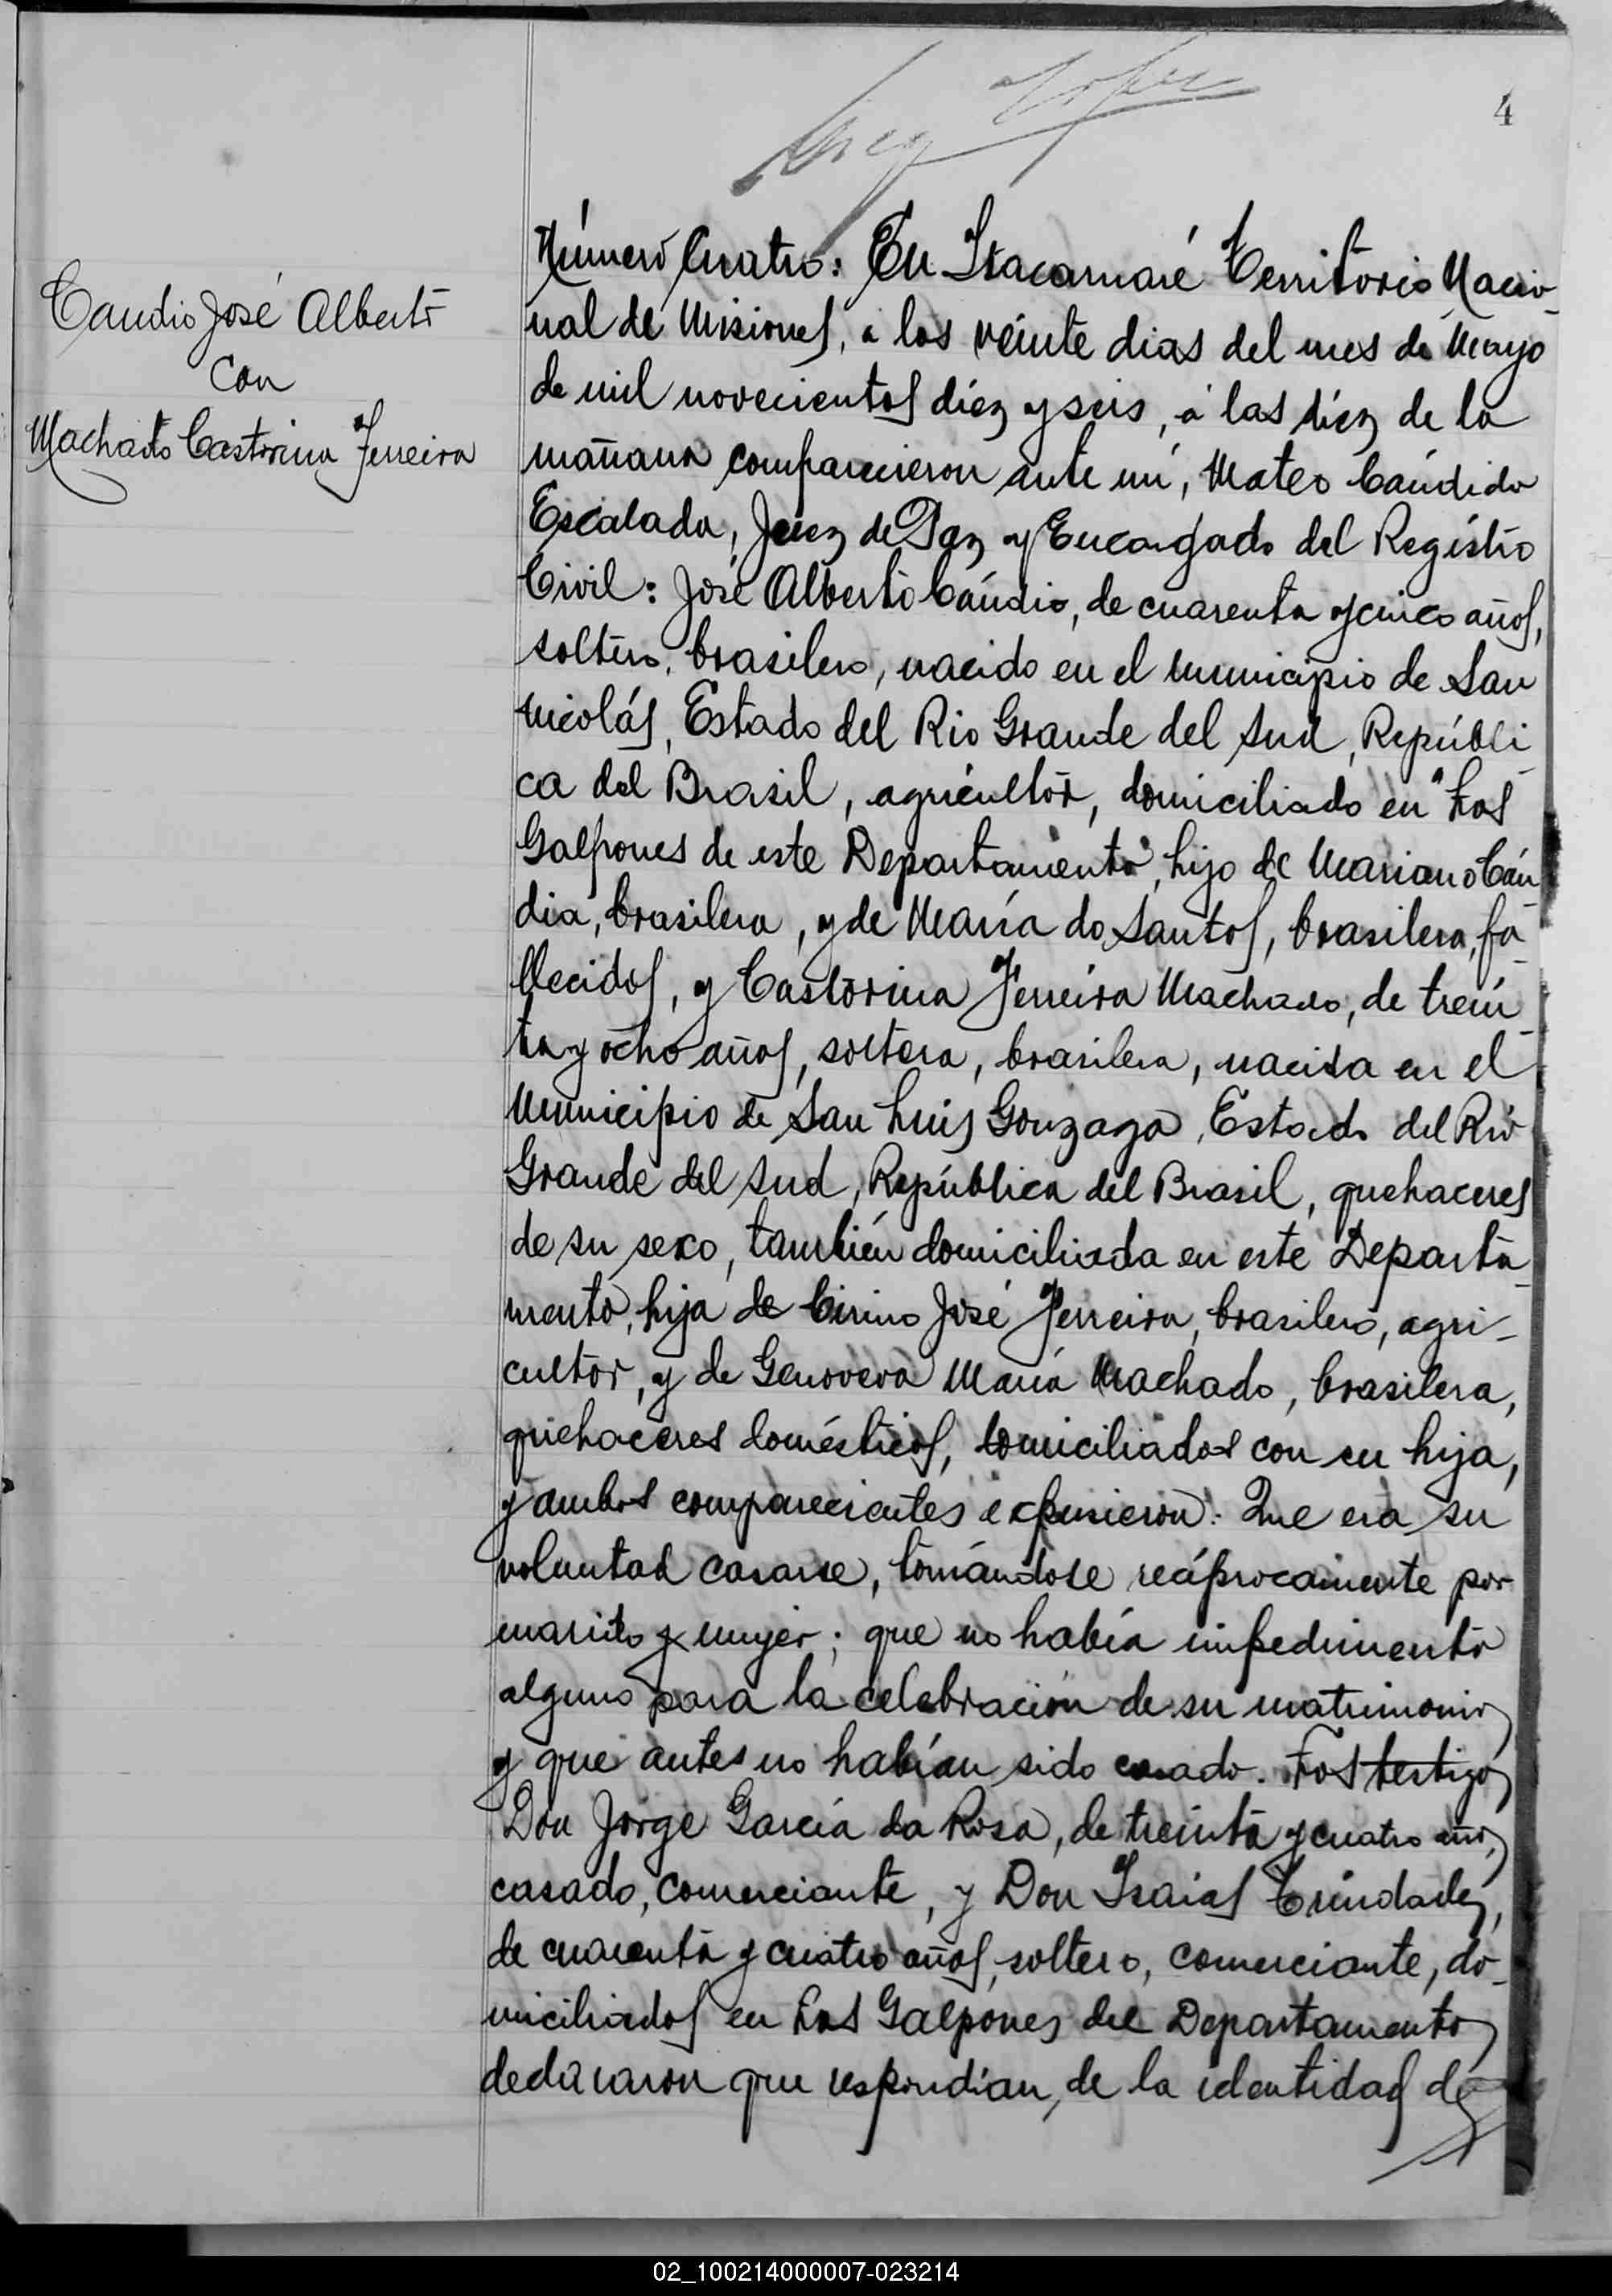 4
Candio José Alberto
con
Machado Castorina Ferreira
Número Cuatro: En Itacaruaré Territorio Nacio-
nal de Misiones, á los veinte dias del mes de Mayo
de mil novecientos diez y seis, á las diez de la
mañana comparecieron ante mí, Mateo Cándido
Escalada, Juez de Paz y Encargado del Registro
Civil: José Alberto Cándio, de cuarenta y cinco años,
soltero, brasilero, nacido en el municipio de San
Nicolás, Estado del Rio Grande del Sud, Repúbli-
ca del Brasil, agricultor, domiciliado en "Los
Galpones de este Departamento", hijo de Mariano Cán-
dia, brasilera, y de María do Santos, brasilera, fa-
llecidos, y Castorina Ferreira Machado, de trein-
ta y ocho años, soltera, brasilera, nacida en el
Municipio de San Luis Gonzaga, Estado del Rio
Grande del Sud, República del Brasil, quehaceres
de su sexo, también domiciliada en este Departa-
mento, hija de Cirino José Ferreira, brasilero, agri-
cultor, y de Genoveva María Machado, brasilera,
quehaceres domésticos, domiciliados con su hija,
y ambos comparecientes expusieron: Que era su
voluntad casarse, tomándose recíprocamente por
marido y mujer; que no había impedimento
alguno para la celebración de su matrimonio
y que antes no habían sido casado. Los testigos
Don Jorge García da Rosa, de treinta y cuatro años,
casado, comerciante, y Don Isaias Trindadez,
de cuarenta y cuatro años, soltero, comerciante, do-
miciliados en Los Galpones del Departamento
declararon que respondían, de la identidad de
02_100214000007-023214